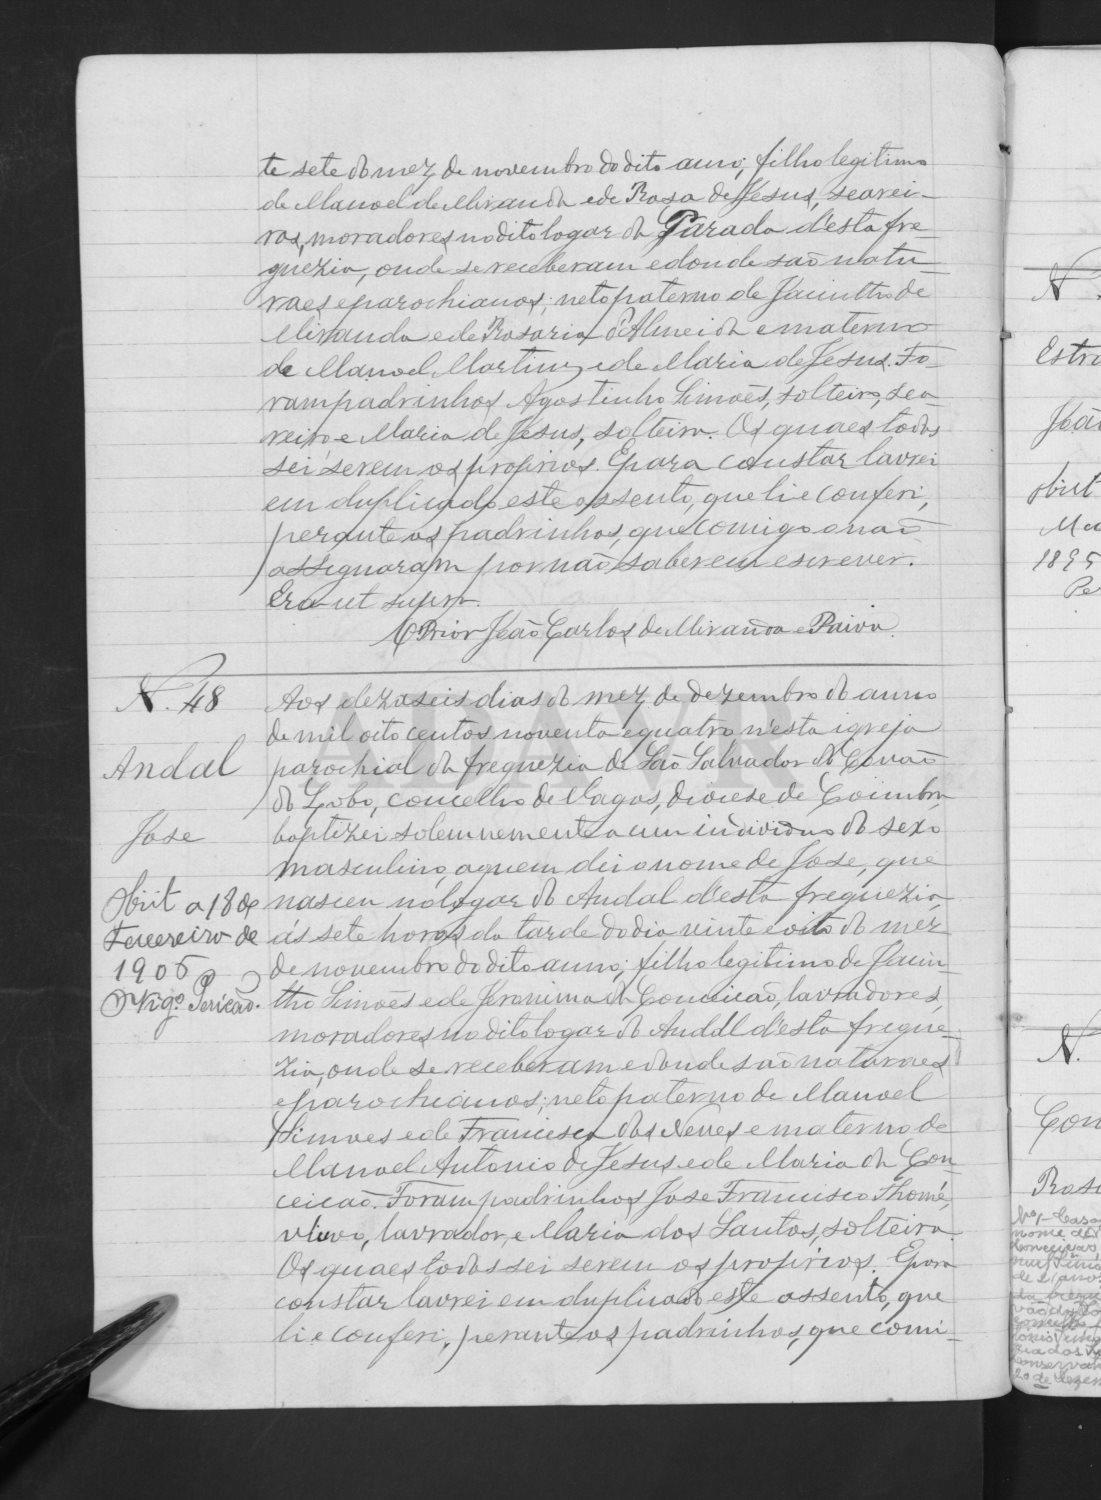 te sete do mez de novembro do dito anno; filho legitimo
de Manoel de Miranda e de Rosa de Jesus, searei-
ros, moradores no dito logar da Parada d'esta fre-
guezia, onde se receberam e donde são natu-
raes e parochianos; neto paterno de Jacintho de
Miranda e de Rosaria d'Almeida e materno
de Manoel Martins e de Maria de Jesus. Fo-
ram padrinhos Agostinho Simões, solteiro, sea-
reiro, e Maria de Jesus, solteira. Os quaes todos
sei serem os proprios. E para constar lavrei
em duplicado este assento, que li e conferi,
perante os padrinhos, que comigo o não
assignaram por não saberem escrever.
Era ut supra.
O Prior João Carlos de Miranda e Paiva.
N. 48
Andal
Jose
Obiit a 18 de
Fevereiro de
1906
O Vigº. Pericão.
Aos dezaseis dias do mez de dezembro do anno
de mil oito centos noventa e quatro n'esta igreja
parochial da freguezia de São Salvador do Covão
do Lobo, concelho de Vagos, diocese de Coimbra
baptizei solemnemente a um individuo do sexo
masculino, a quem dei o nome de Jose, que
nasceu no logar do Andal d'esta freguezia
ás sete horas da tarde do dia vinte e oito do mez
de novembro do dito anno; filho legitimo de Jacin-
tho Simões e de Jeronima da Conceicão, lavradores,
moradores no dito logar do Andal d'esta fregue-
zia, onde se receberam e donde são naturaes
e parochianos; neto paterno de Manoel
Simoes e de Francisca das Neves e materno de
Manoel Antonio de Jesus e de Maria da Con-
ceicão. Foram padrinhos Jose Francisco Thomé,
viuvo, lavrador, e Maria dos Santos, solteira.
Os quaes todos sei serem os proprios. E para
constar lavrei em duplicado este assento, que
li e conferi, perante os padrinhos, que comi-
ADAVR
N.
Estre
João
Obiit
1895
N.
Con
Rosa